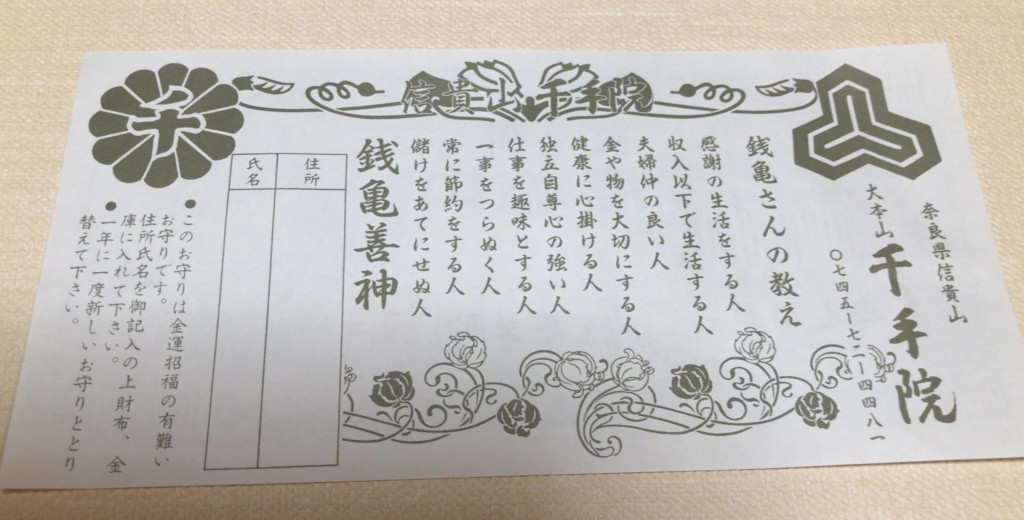 信貴山 千手院
千
奈良県信貴山
大本山 千手院
〇七四五ー七二ー四四八一
銭亀さんの教え
感謝の生活をする人
収入以下で生活する人
夫婦仲の良い人
金や物を大切にする人
健康に心掛ける人
独立自尊心の強い人
仕事を趣味とする人
一事をつらぬく人
常に節約をする人
儲けをあてにせぬ人
銭亀善神
住所
氏名
●このお守りは金運招福の有難い
お守りです。
住所氏名を御記入の上財布、金
庫に入れて下さい。
●一年に一度新しいお守りととり
替えて下さい。